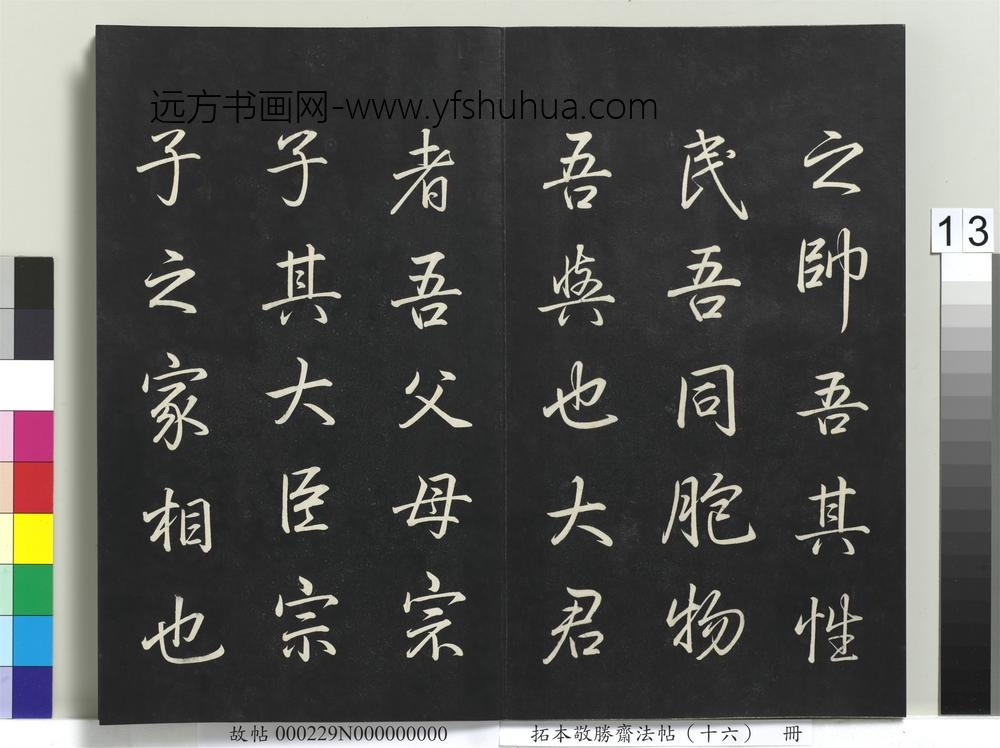 远方书画网-www.yfshuhua.com
之帥吾其性
民吾同胞物
吾與也大君
者吾父母宗
子其大臣宗
子之家相也
13
故帖 000229N000000000
拓本敬勝齋法帖（十六） 冊